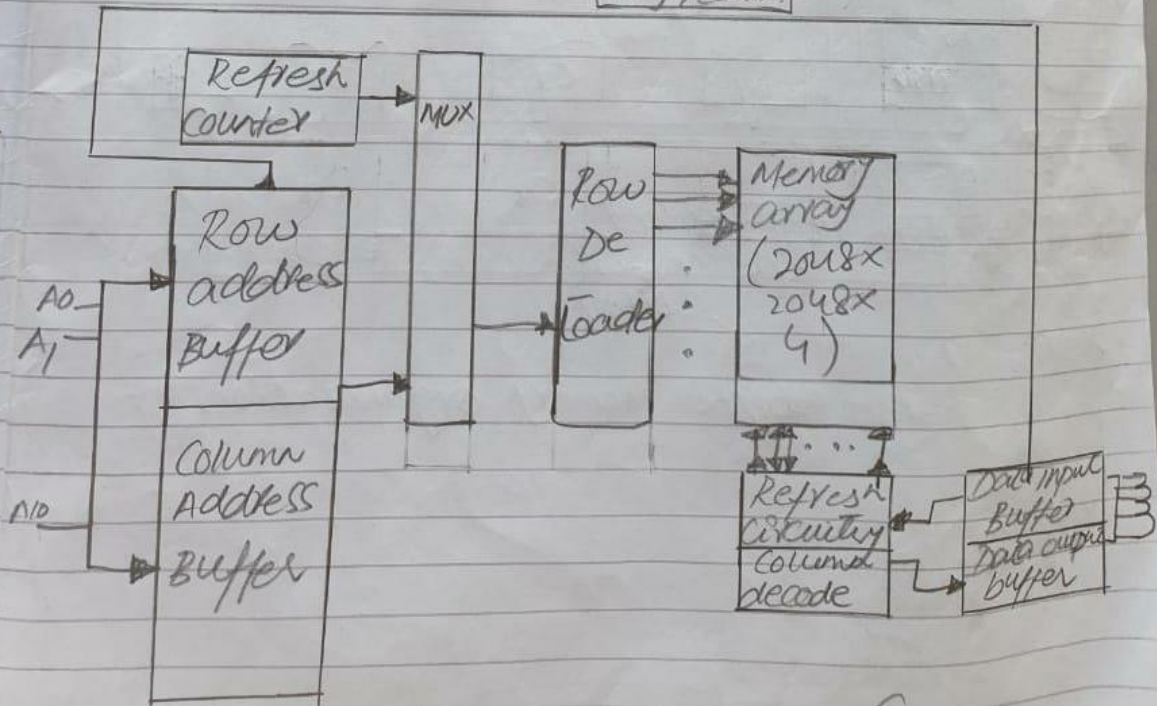 Refresh
Counter
MUX
Row
address
Buffer
A0
A1
A10
Column
Address
Buffer
Row
De
Coader
Memory
array
(2048x
2048x
4)
Refresh
Circuitry
Column
decode
Data input
Buffer
Data output
buffer